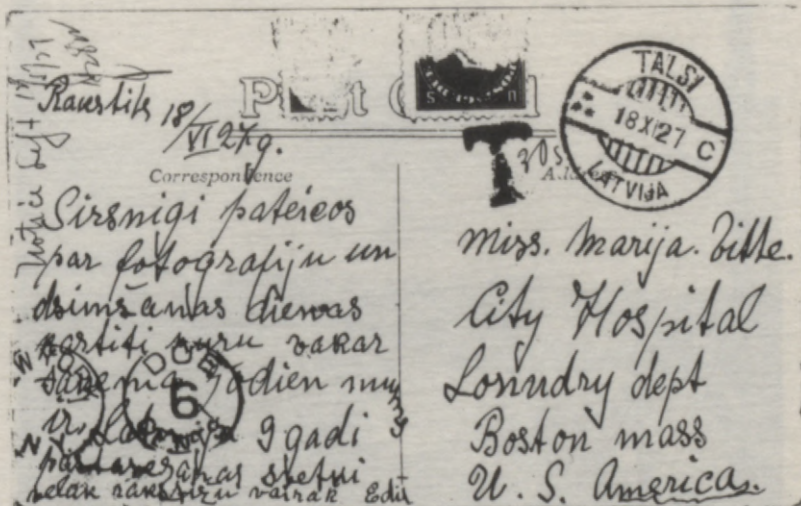 Post Card
TALSI
18 XI 27
C
LATVIJA
18/VI 27 g.
T
Correspondence
Sirsnigi pateicos
par fotografiju un
dsimšanas dienas
kartiti kuru vakar
sanemu šodien mums
ir Latvijā 9 gadi
svetki
velak rakstizu vairak Edit
DUE
6
Miss. Marija. Vitte.
City Hospital
Lonndry dept
Boston mass
U. S. America.